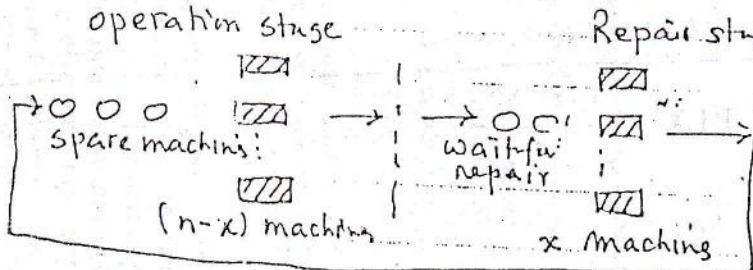 operation stage
Repair sta
spare machins:
wait for
repair
(n-x) machins
x machins